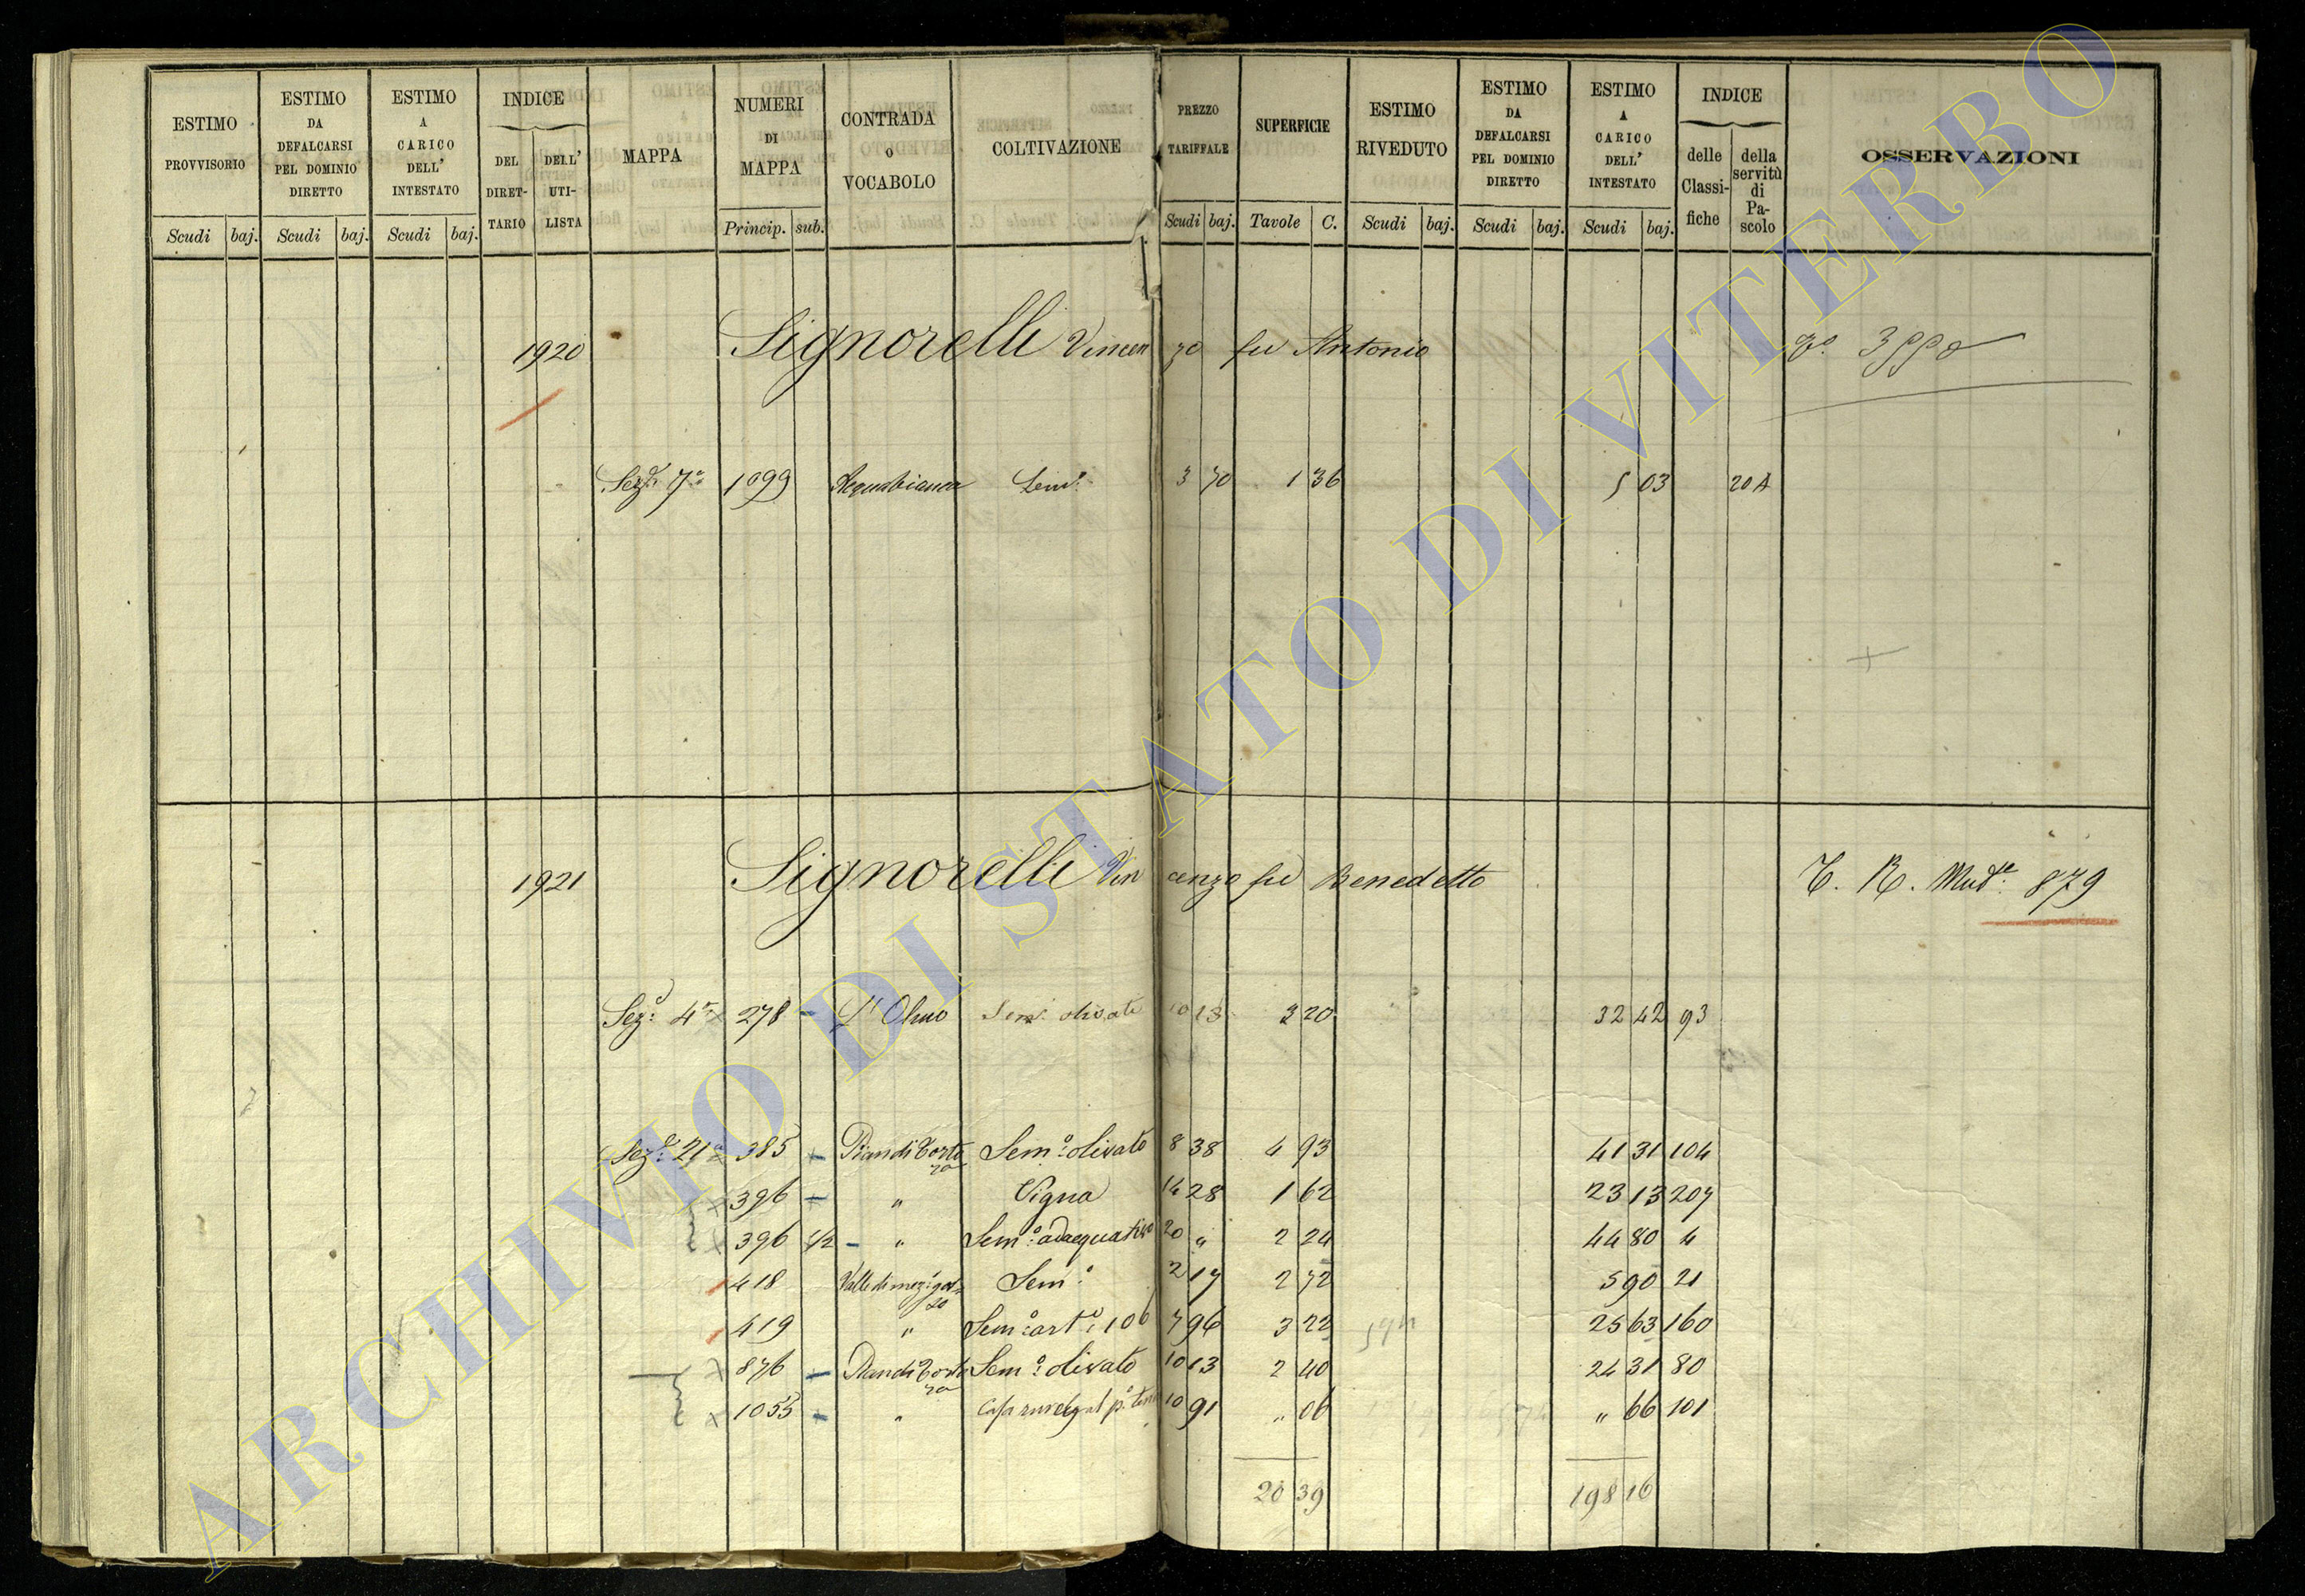 ESTIMO PROVVISORIO Scudi baj.
ESTIMO DA DEFALCARSI PEL DOMINIO DIRETTO Scudi baj.
ESTIMO A CARICO DELL' INTESTATO Scudi baj.
INDICE DEL DIRET- TARIO DELL' UTI- LISTA
MAPPA
NUMERI DI MAPPA Princip. sub.
CONTRADA O VOCABOLO
COLTIVAZIONE
PREZZO TARIFFALE Scudi baj.
SUPERFICIE Tavole C.
ESTIMO RIVEDUTO Scudi baj.
ESTIMO DA DEFALCARSI PEL DOMINIO DIRETTO Scudi baj.
ESTIMO A CARICO DELL' INTESTATO Scudi baj.
INDICE delle Classi- fiche della servitù di Pa- scolo
OSSERVAZIONI
1920 Signorelli Vincenzo fu Antonio
Sez.e 7a 1099 Acquabianca Sem.o 3 70 1 36 5 03 20A
1921 Signorelli Vincenzo fu Benedetto T. R. Mut.e 879
Sez.e 4a 278 L'Olmo Sem.o olivato 10 13 3 20 32 42 93
Sez.e 21a 385 Piandi Torto Sem.o olivato 8 38 4 93 41 31 104
396 " Vigna 14 28 1 62 23 13 207
396 1/2 " Sem.o adaequativo 20 " 2 24 44 80 4
418 Sem.o 2 17 2 72 5 90 21
419 " Sem.o art.o 106 7 96 3 22 25 63 160
876 Sem.o olivato 10 13 2 40 24 31 80
1055 " Casa 10 91 " 06 " 66 101
20 39 198 16
ARCHIVIO DI STATO DI VITERBO